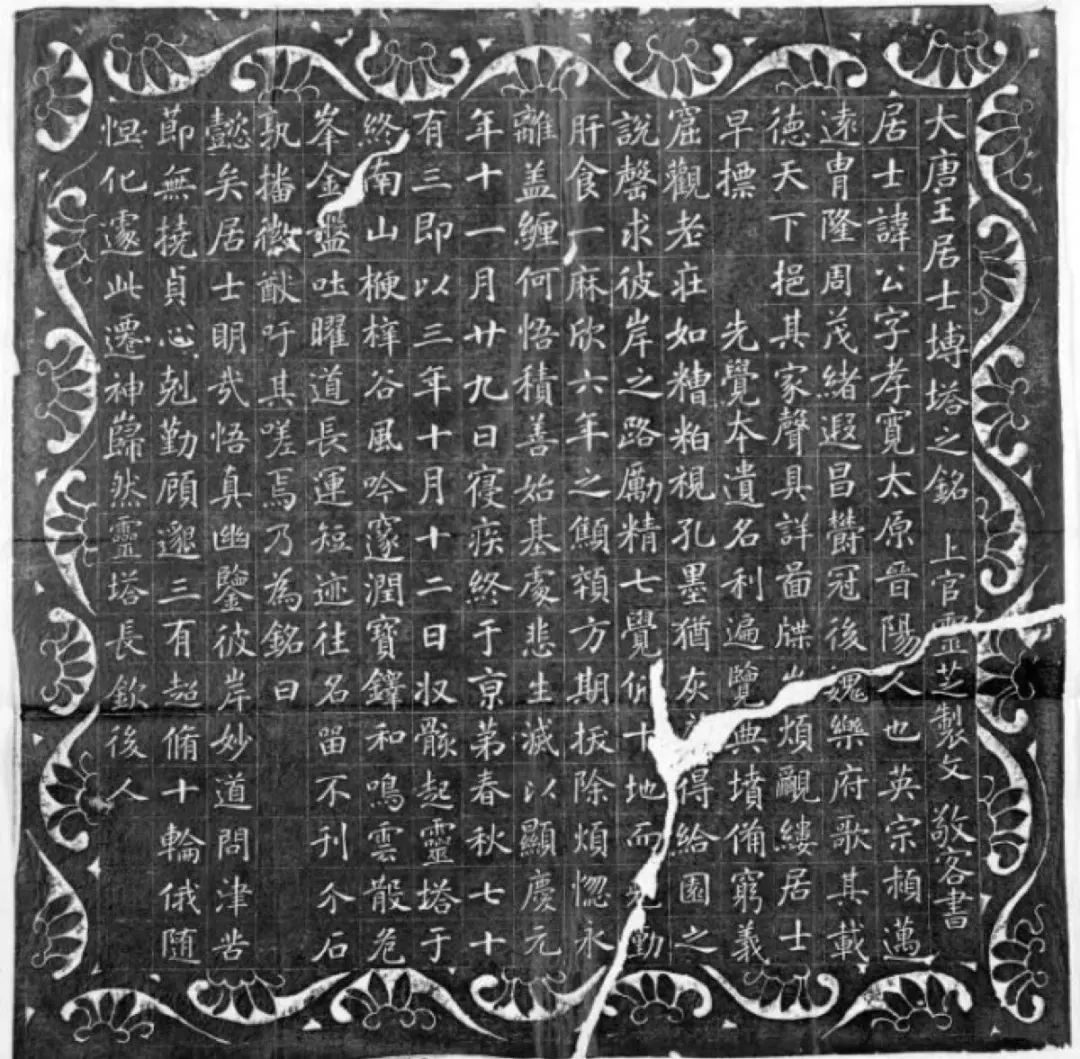 大唐王居士塼塔之銘　上官靈芝製文　敬客書
居士諱公字孝寬太原晉陽人也英宗頼邁
遠胄隆周茂緒遐昌欝冠後魏樂府歌其載
德天下挹其家聲具詳圖牒煩覼縷居士
早摽　先覺本遺名利遍覽典墳備窮義
窟觀老莊如糟粕視孔墨猶灰得給園之
說罄求彼岸之路勵精七覺仰十地而克勤
肝食一麻欣六年之顦顇方期拔除煩惚永
離盖纏何悟積善始基處悲生滅以顯慶元
年十一月廿九日寑疾終于京第春秋七十
有三即以三年十月十二日收骸起靈塔于
終南山楩梓谷風吟邃澗寶鐸和鳴雲散危
峯金盤吐曜道長運短迹往名留不刊介石
孰播徽猷吁其嗟焉乃為銘曰
懿矣居士明哉悟真幽鑒彼岸妙道問津苦
莭無撓貞心剋勤顧邈三有超脩十輪俄随
怛化遽此遷神巋然靈塔長欽後人